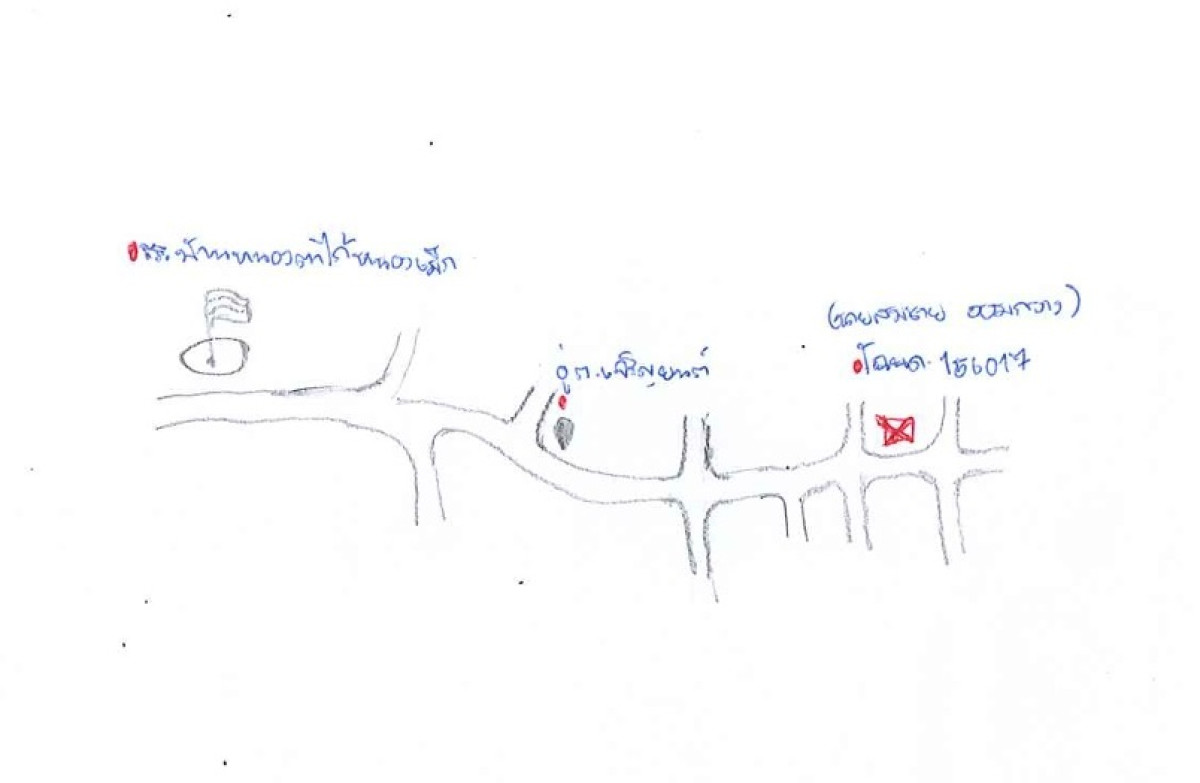 รร.บ้านหนองตาไก้หนองเม็ก
(นายสมชาย
อู่ ต.เจริญยนต์
โฉนด. 156017